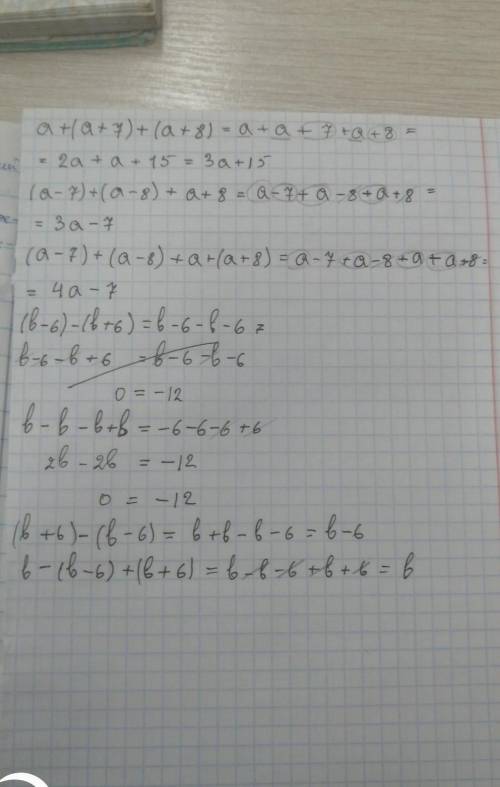 a+(a+7)+(a+8) = a+a+7+a+8 =
= 2a+a+15 = 3a+15
(a-7)+(a-8)+a+8 = a-7+a-8+a+8 =
= 3a-7
(a-7)+(a-8)+a+(a+8) = a-7+a-8+a+a+8=
= 4a-7
(b-6)-(b+6)=b-6-b-6 =
b-6-b+6 = b-6-b-6
0 = -12
b-b-b+b = -6-6-6+6
2b-2b = -12
0 = -12
(b+6)-(b-6) = b+b-b-6 = b-6
b-(b-6)+(b+6) = b-b-6+b+6 = b